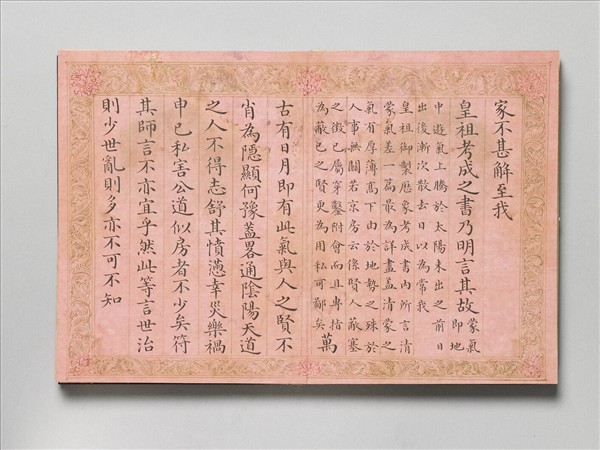 家不甚解至我
皇祖考成之書乃明言其故蒙氣即地
中遊氣上騰於太陽未出之前日
出後漸次散去日以為常我
皇祖御製厯象考成書內所言清
蒙氣差一篇最為詳盡蓋清蒙之
氣有厚薄高下由於地勢之殊於
人事無關若京房云係賢人蔽塞
之徵已屬穿鑿附會而且專指
為蔽已之賢更為用私可鄙矣萬
古有日月即有此氣與人之賢不
肖為隱顯何豫蓋畧通陰陽天道
之人不得志舒其憤懣幸災樂禍
申已私害公道似房者不少矣符
其師言不亦宜乎然此等言世治
則少世亂則多亦不可不知